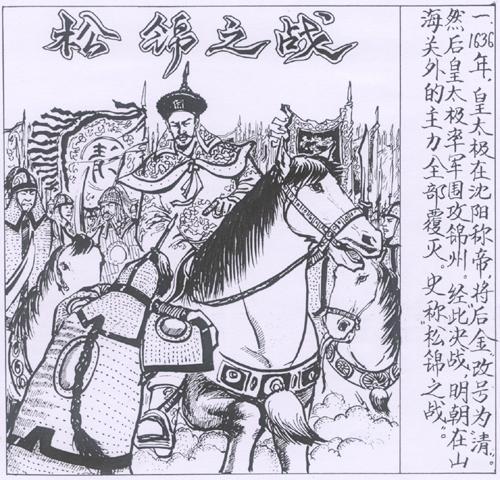 松锦之战
一1636年，皇太极在沈阳称帝，将"后金"改号为"清"。
然后皇太极率军围攻锦州。经此决战，明朝在山
海关外的主力全部覆灭。史称"松锦之战"。